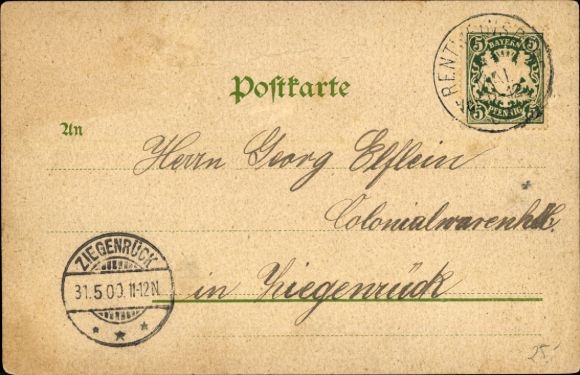 5 BAYERN 5
5 PFENNIG 5
Postkarte
An
Herrn Georg Elflein
Colonialwarenhdl.
in Ziegenrück
ZIEGENRÜCK
31.5.00. 11-12N.
25.-